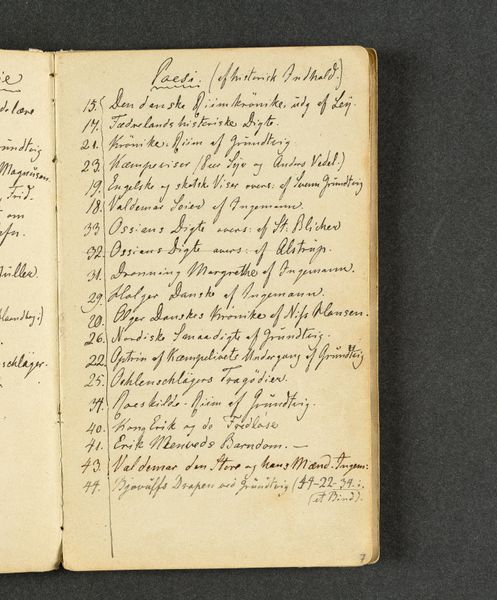 ie
de lære
Grundtvig
Magnusen.
Frid.
om
ofn.
Müller.
Handtog:)
schläger.
Poesi. (af historisk Indhold.)
15. Den danske Riimkrönike. udg. af Lej.
17. Fædrelandshistoriske Digte.
21. Krönike. Riim af Grundtvig
23. Kæmpeviser (Per Syv og Anders Vedel.)
19. Engelske og skotske Viser overs: af Svenn Grundtvig
18. Valdemar Seier af Ingemann.
33. Ossians Digte overs: af St. Blicher
32. Ossians Digte overs: af Alstrup.
31. Dronning Margrethe af Ingemann.
29. Holger Danske af Ingemann.
20. Olger Danskes Krönike af N. Hansen.
26. Nordiske Smaadigte af Grundtvig.
22. Optrin af Kæmpelivets Undergang af Grundtvig
25. Oehlenschlägers Tragödier.
34. Roeskilde-Riim af Grundtvig.
40. Kong Erik og de Fredløse
41. Erik Menveds Barndom. —
43. Valdemar den Store og hans Mænd. Ingem:
44. Bjovulfs Drapen ved Grundtvig (44-22-34. i.
(et Bind).
7